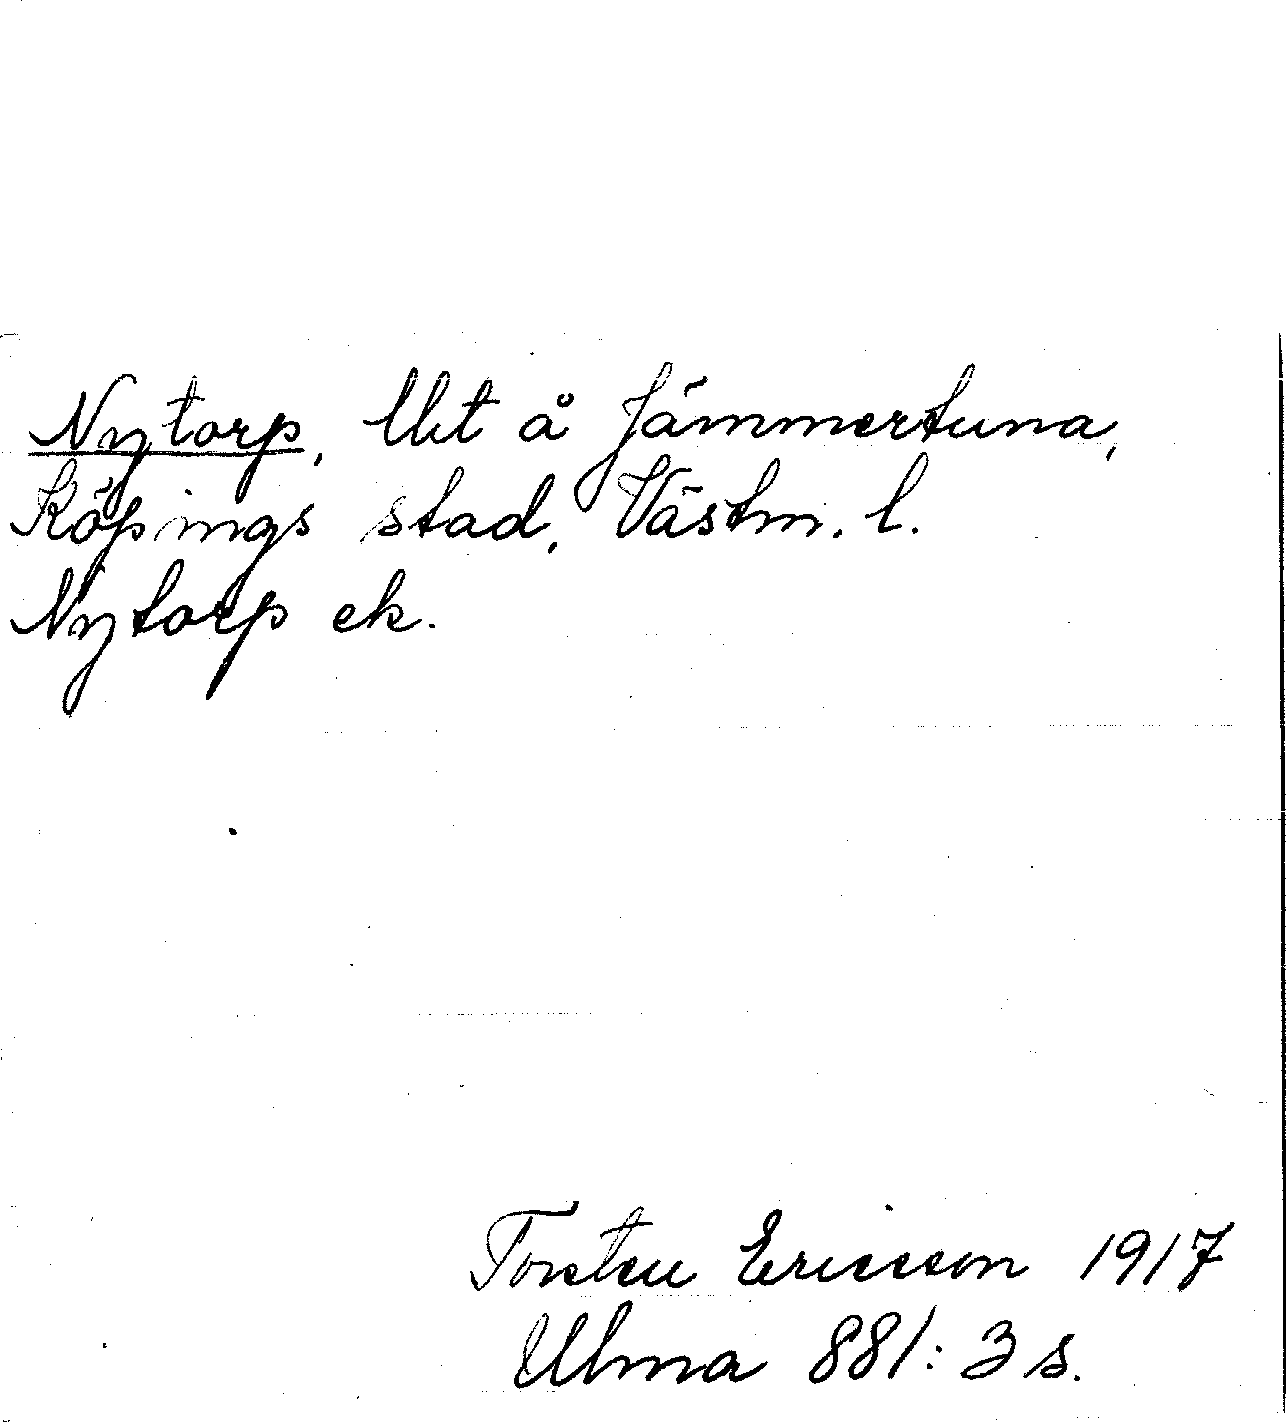 Nytorp, Utet å Jämmertuna,
Köpings stad, Västm. l.
Nytorp ek.
Torsten Ericsson 1917
Ulma 881: 3 s.